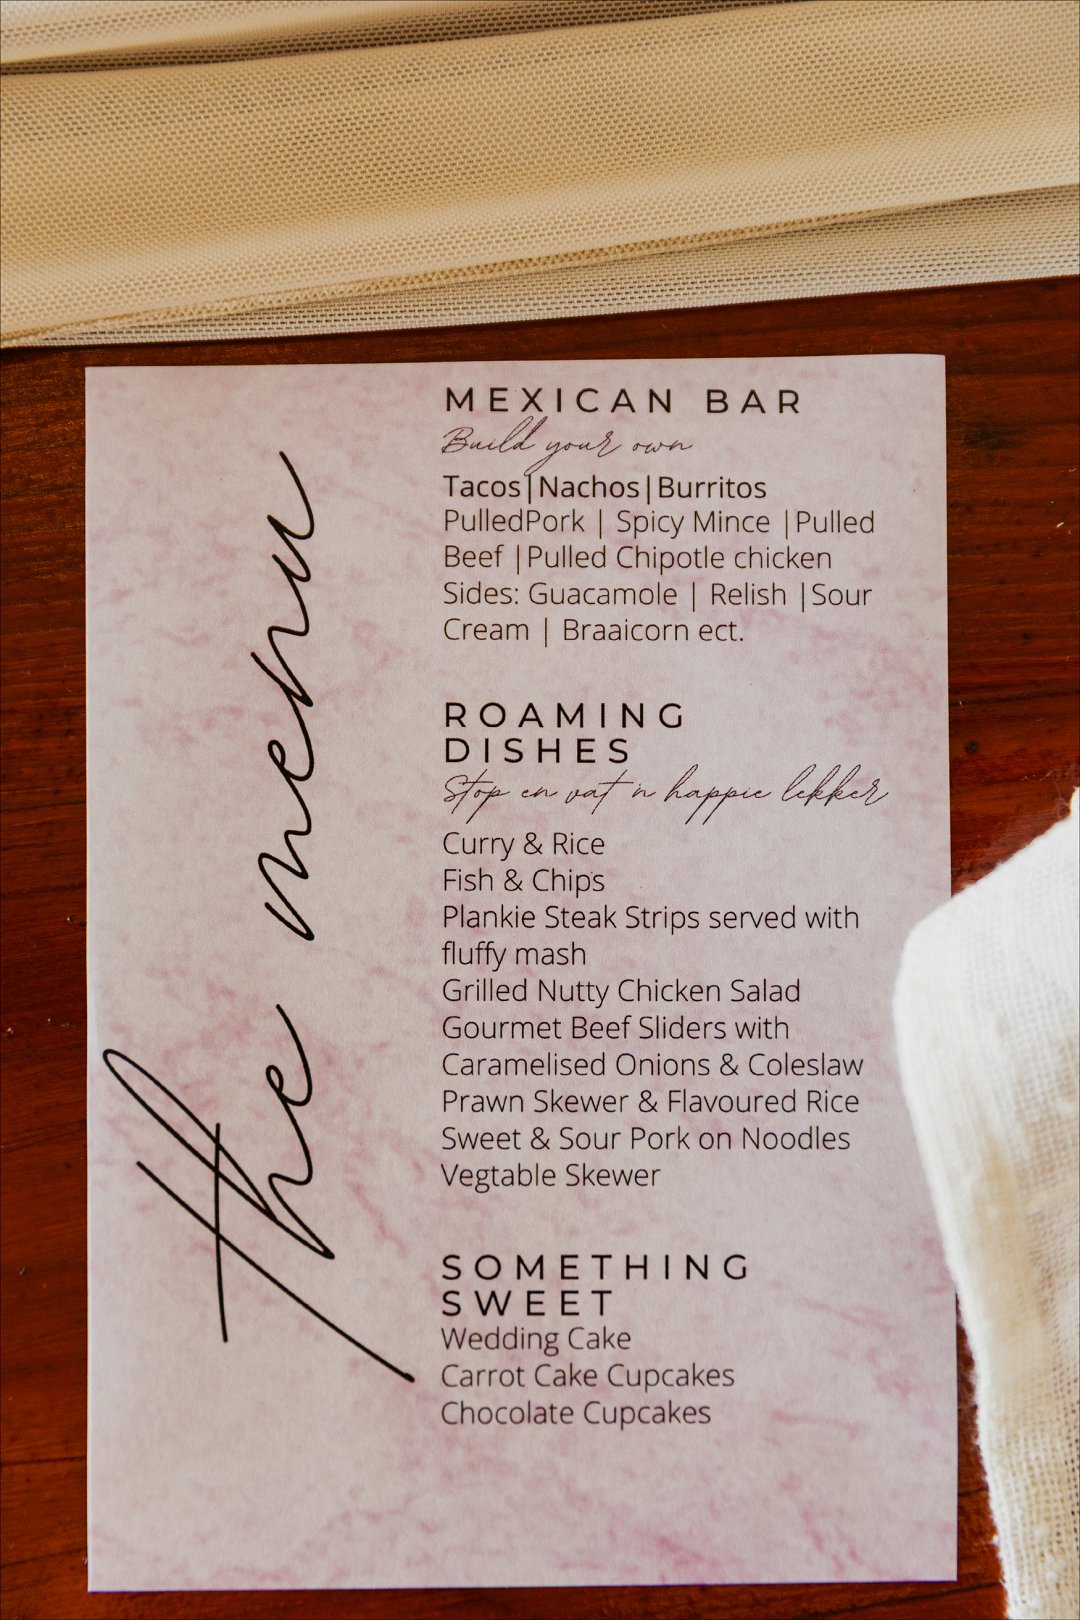 the menu
MEXICAN BAR
Build your own
Tacos|Nachos|Burritos
PulledPork | Spicy Mince |Pulled
Beef |Pulled Chipotle chicken
Sides: Guacamole | Relish |Sour
Cream | Braaicorn ect.
ROAMING
DISHES
Stop en vat 'n happie lekker
Curry & Rice
Fish & Chips
Plankie Steak Strips served with
fluffy mash
Grilled Nutty Chicken Salad
Gourmet Beef Sliders with
Caramelised Onions & Coleslaw
Prawn Skewer & Flavoured Rice
Sweet & Sour Pork on Noodles
Vegtable Skewer
SOMETHING
SWEET
Wedding Cake
Carrot Cake Cupcakes
Chocolate Cupcakes